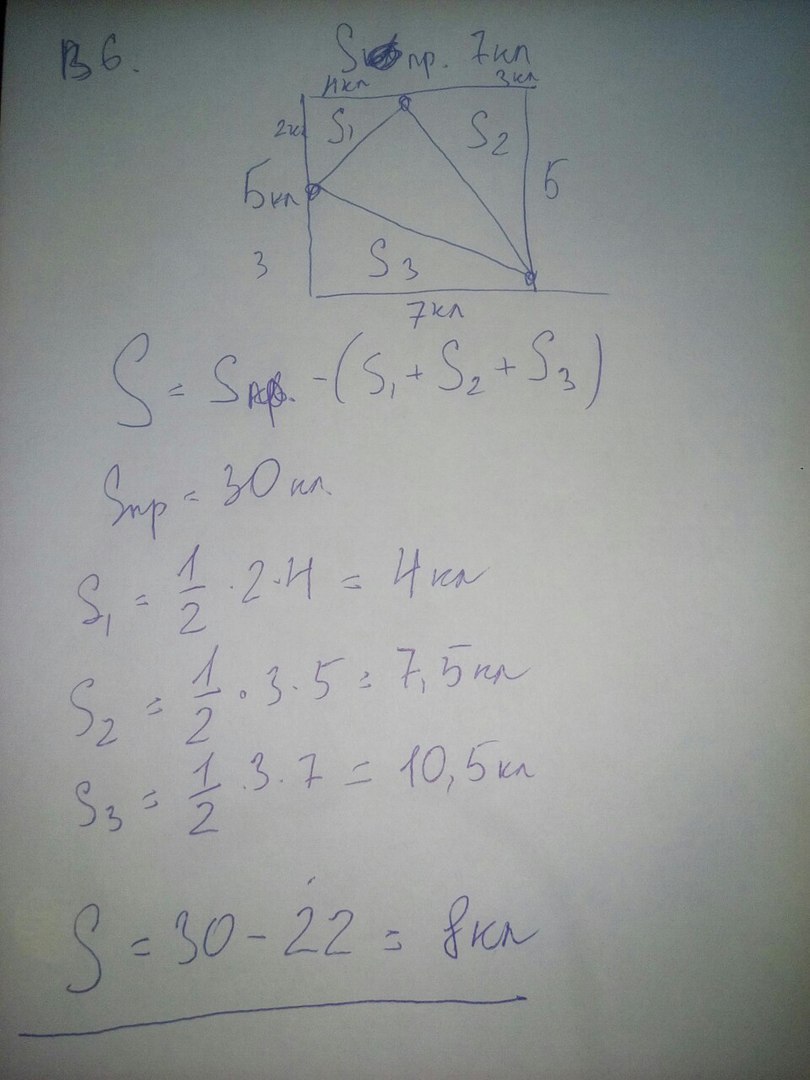 В 6.
S пр. 7кл
4кл 3кл
2кл S₁ S₂
5кл 5
3 S₃
7кл
S = Sпр. - (S₁ + S₂ + S₃)
Sпр = 30 кл.
S₁ = 1/2 · 2 · 4 = 4 кл
S₂ = 1/2 · 3 · 5 = 7,5кл
S₃ = 1/2 · 3 · 7 = 10,5кл
S = 30 - 22 = 8кл